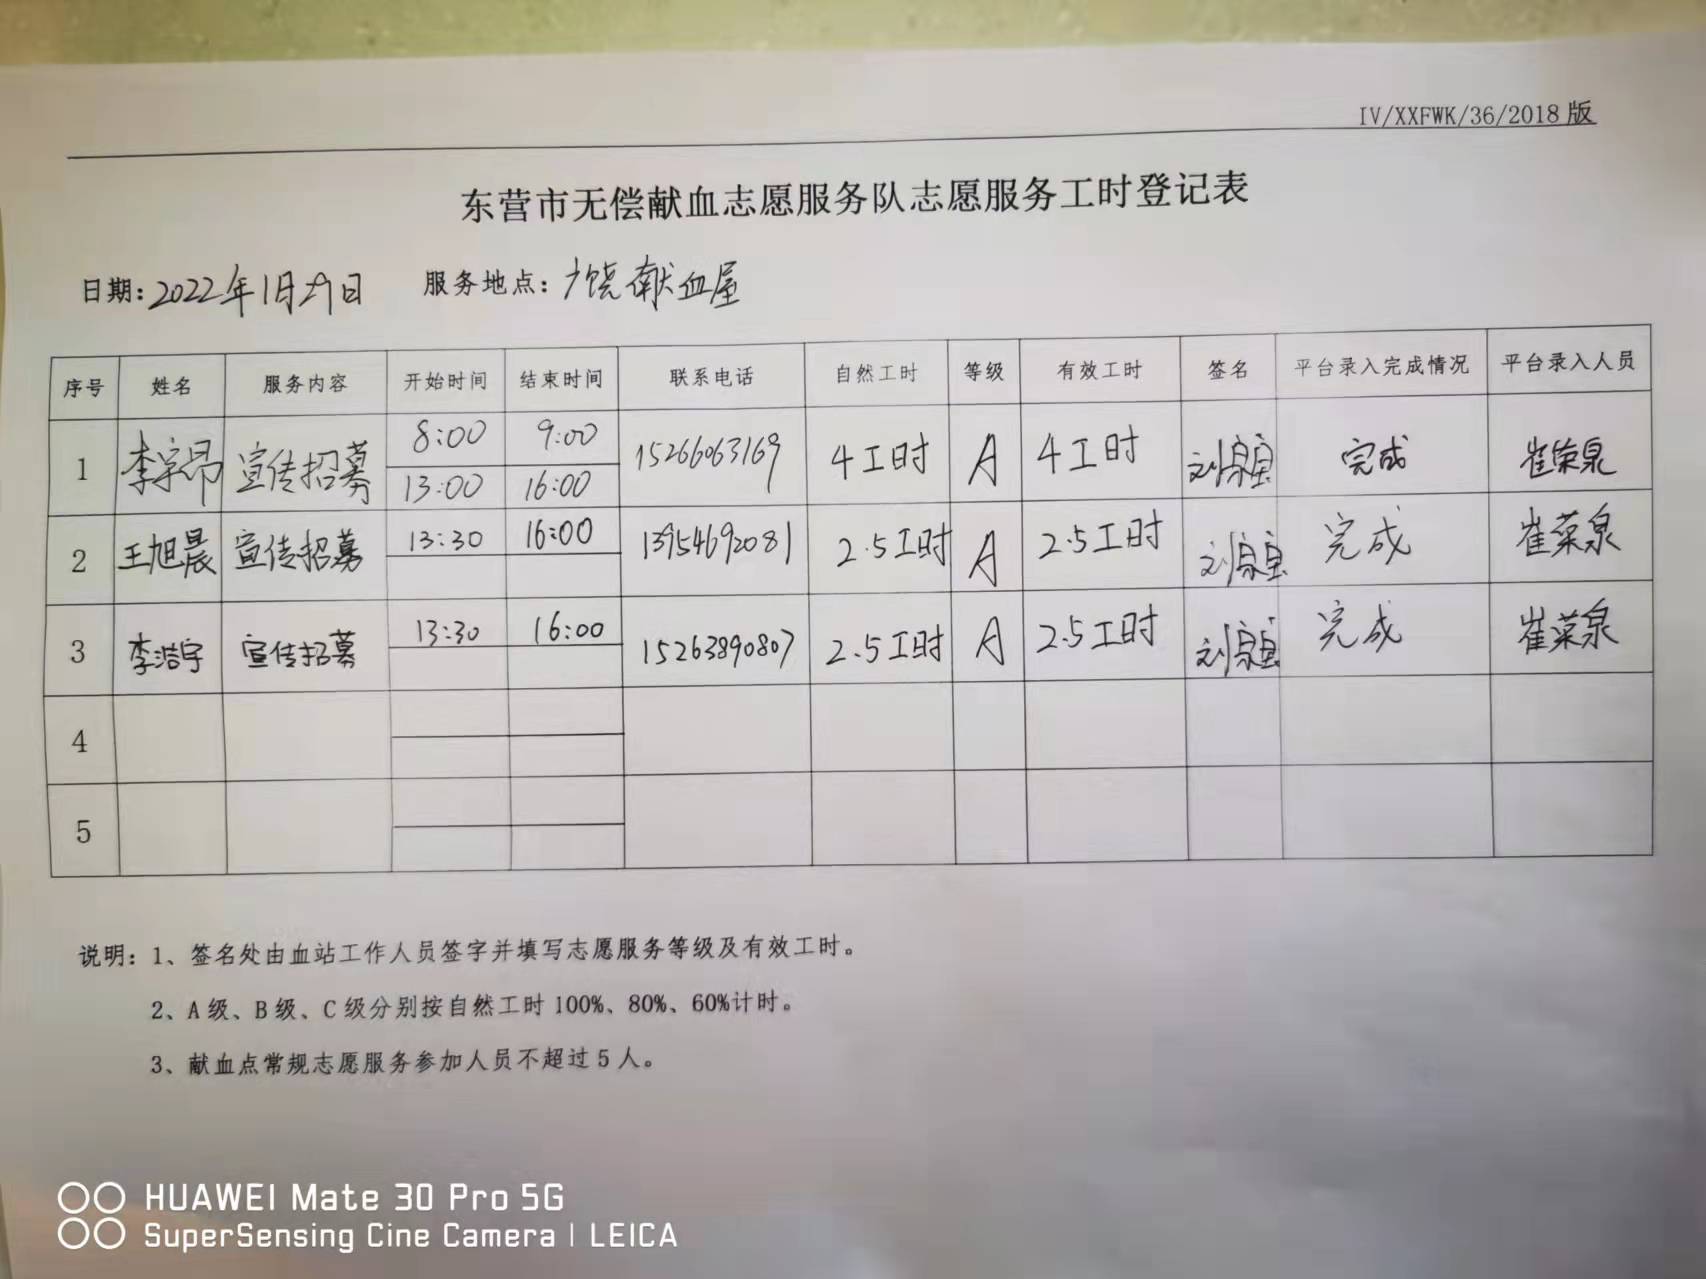 IV/XXFWK/36/2018版
东营市无偿献血志愿服务队志愿服务工时登记表
日期:2022年1月29日 服务地点:广饶献血屋
序号 姓名 服务内容 开始时间 结束时间 联系电话 自然工时 等级 有效工时 签名 平台录入完成情况 平台录入人员
1 李宇昂 宣传招募 8:00 9:00 15266063169 4工时 A 4工时 完成 崔荣泉
13:00 16:00
2 王旭晨 宣传招募 13:30 16:00 13954692081 2.5工时 A 2.5工时 完成 崔荣泉
3 李浩宇 宣传招募 13:30 16:00 15263890807 2.5工时 A 2.5工时 完成 崔荣泉
4
5
说明:1、签名处由血站工作人员签字并填写志愿服务等级及有效工时。
2、A级、B级、C级分别按自然工时100%、80%、60%计时。
3、献血点常规志愿服务参加人员不超过5人。
HUAWEI Mate 30 Pro 5G
SuperSensing Cine Camera | LEICA